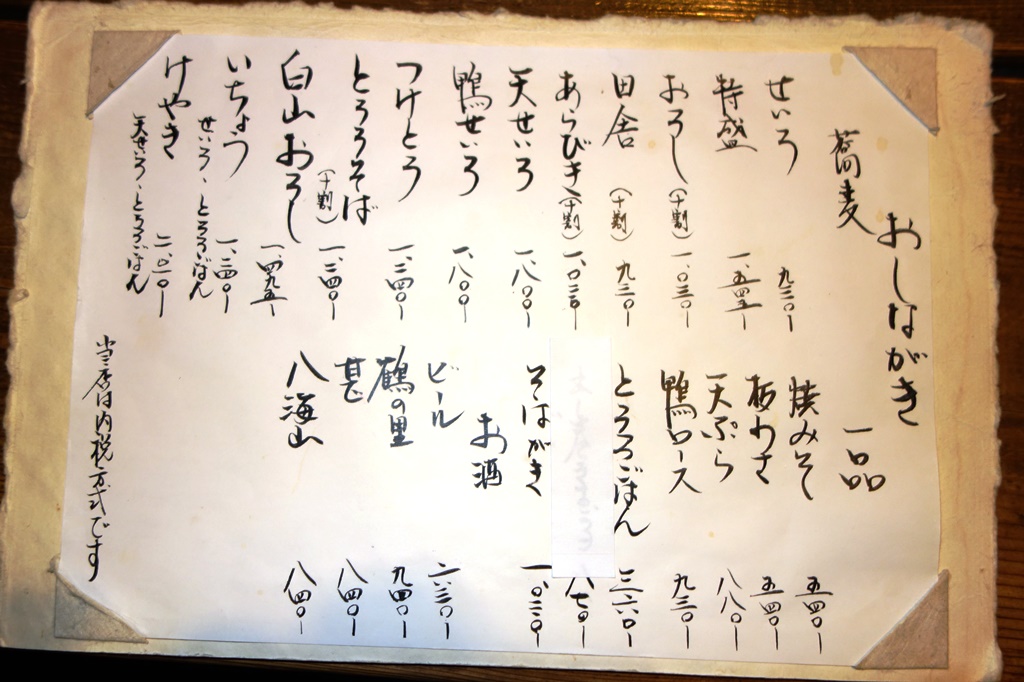 おしながき
蕎麦
せいろ 九三〇ー
特盛 一、五四五ー
おろし(十割) 一、〇三〇ー
田舎(十割) 九三〇ー
あらびき(十割) 一、〇三〇ー
天せいろ 一、八〇〇ー
鴨せいろ 一、八〇〇ー
つけとろ 一、三四〇ー
とろろそば(十割) 一、三四〇ー
白山おろし 一、四九五ー
いちょう
せいろ、とろろごはん 一、三四〇ー
けやき
天せいろ、とろろごはん
一品
焼みそ 五四〇ー
板わさ 五四〇ー
天ぷら 八八〇ー
鴨ロース 九三〇ー
とろろごはん 三六〇ー
八七〇ー
そばがき 一、〇三〇ー
お酒
ビール 六三〇ー
鶴の里 九四〇ー
甚 八四〇ー
八海山 八四〇ー
当店は内税方式です